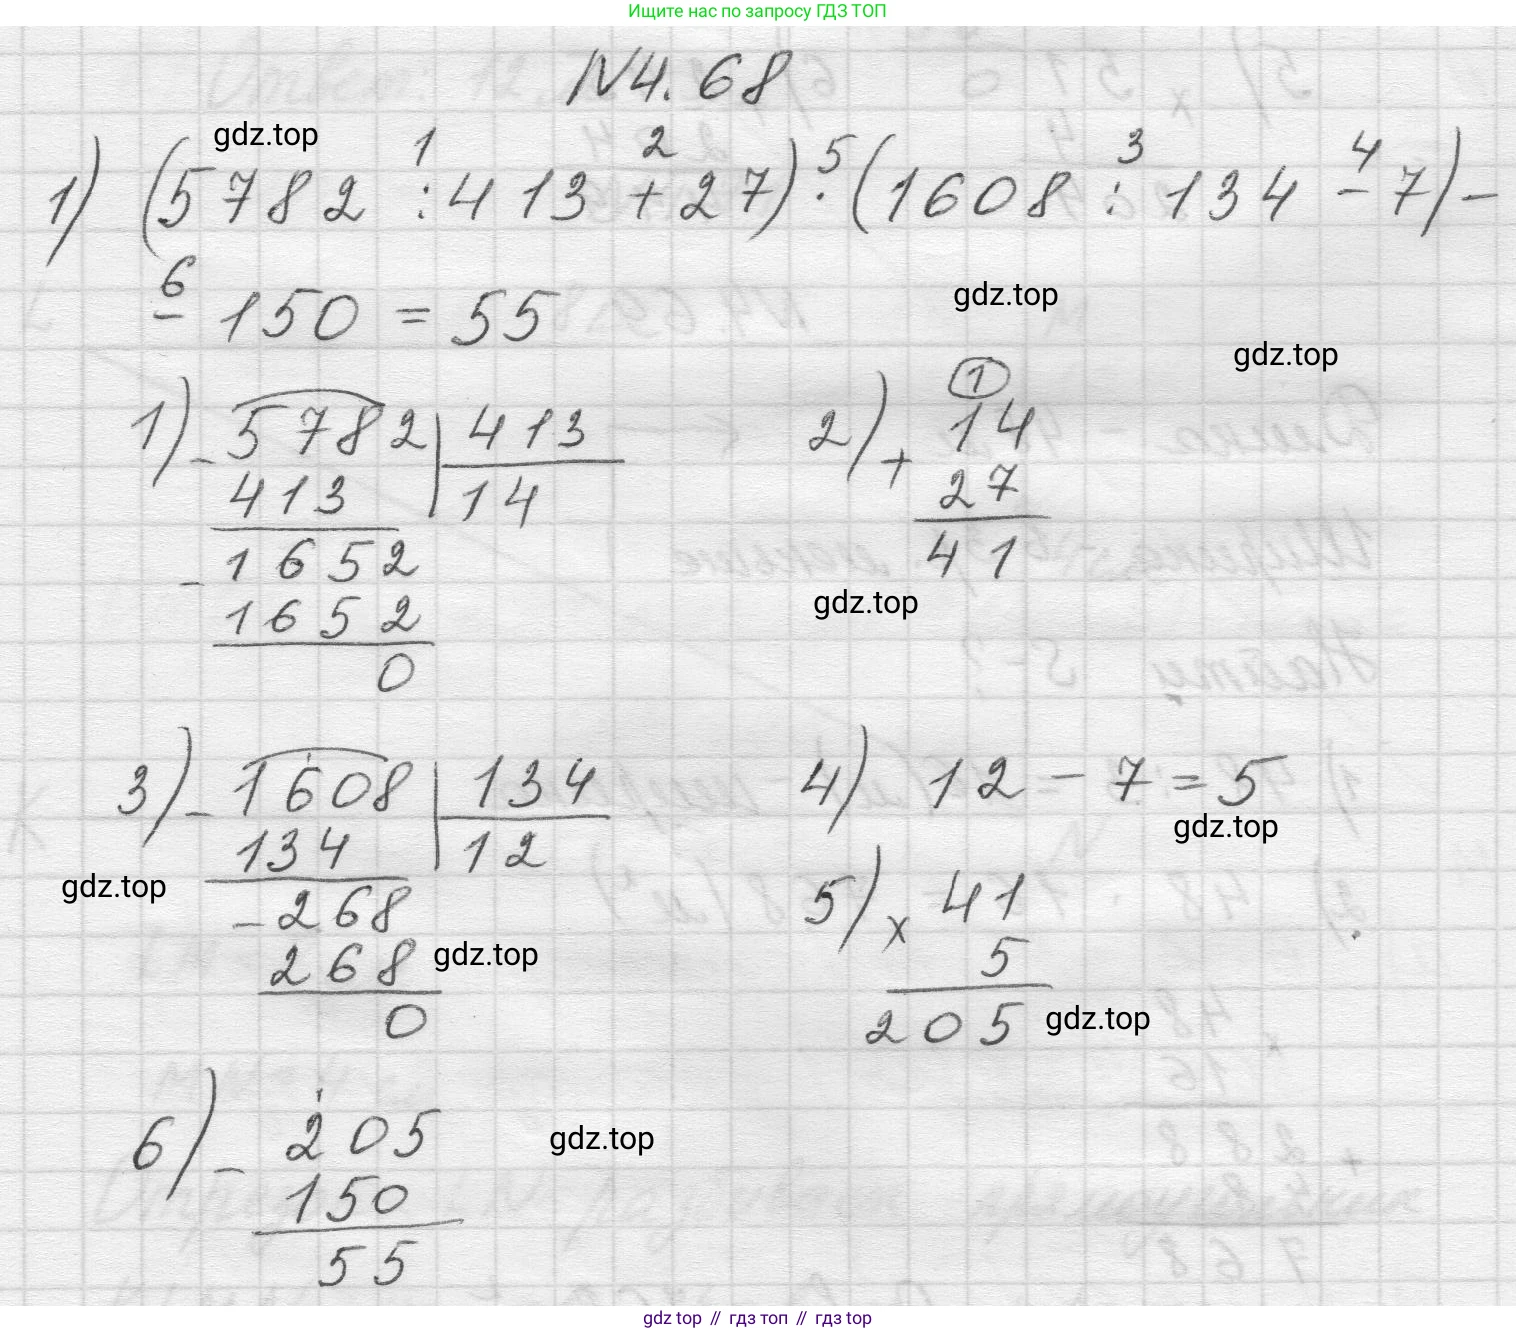 Ищите нас по запросу ГДЗ ТОП
N4.68
gdz.top
1 2 5 3 4
1) (5782 : 413 + 27) · (1608 : 134 - 7) -
6
- 150 = 55
gdz.top
gdz.top
1) - 5782 | 413
413 14
- 1652
1652
0
2) + 1
14
27
41
gdz.top
3) - 1608 | 134
134 12
- 268
268
0
gdz.top
gdz.top
4) 12 - 7 = 5
gdz.top
5) x 41
5
205
gdz.top
6) - 205
150
55
gdz.top
gdz top // гдз топ // гдз top